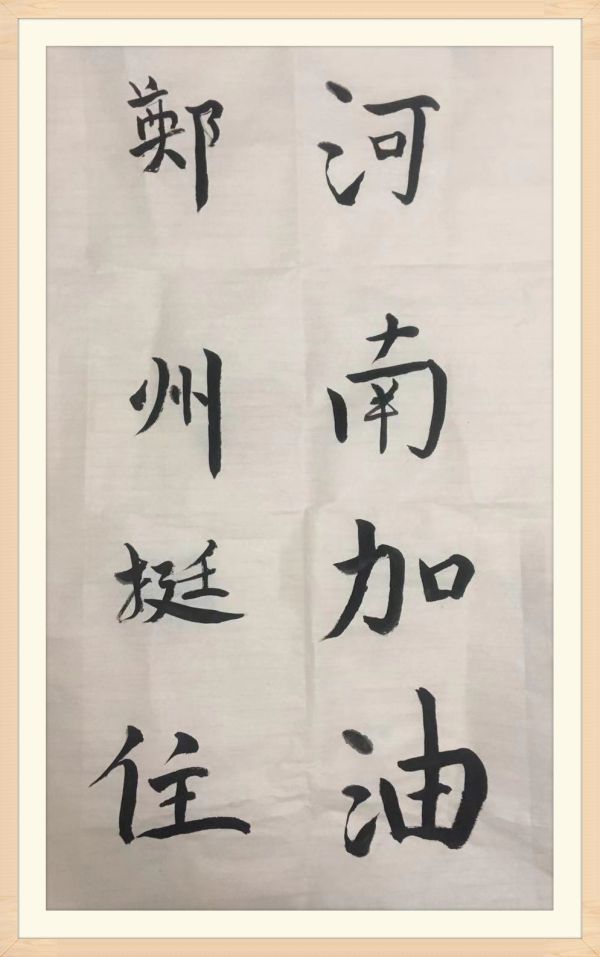 河南加油
郑州挺住